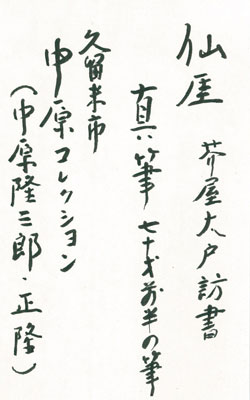 仙厓 芥屋大戸訪書
真筆 七十才前半の筆
久留米市
中原コレクション
(中原隆三郎・正隆)